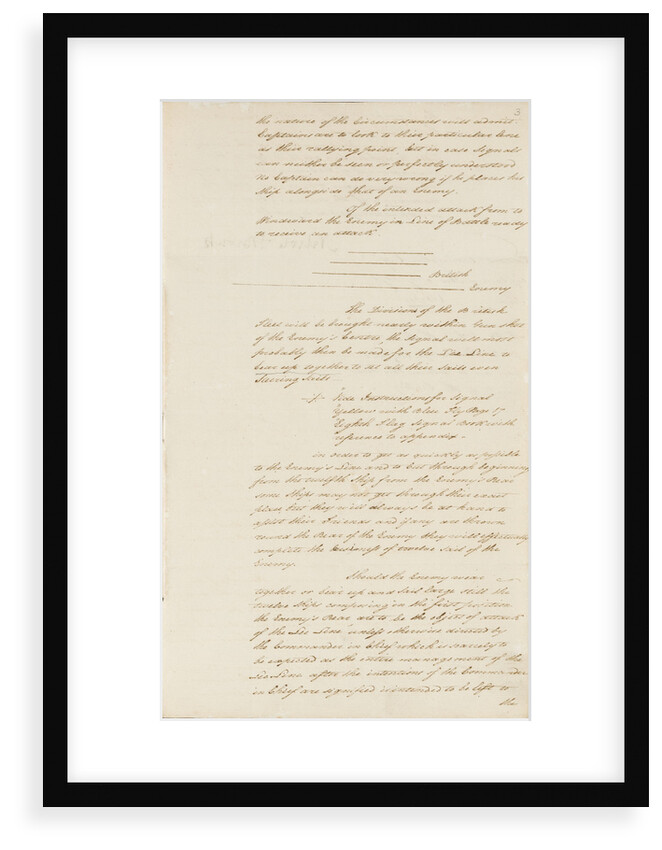 3
the nature of the Circumstances will admit
Captains are to look to their particular Line
as their rallying point but in case Signals
can neither be seen or perfectly understood
no Captain can do very wrong if he places his
Ship alongside that of an Enemy.
Of the intended attack from to
Windward the Enemy in Line of Battle ready
to receive an attack
British
Enemy
The Divisions of the British
Fleet will be brought nearly within Gun Shot
of the Enemy's Centre, the Signal will most
probably then be made for the Lee Line to
bear up together to set all their Sails even
Steering Sails
Vide Instructions for Signal
Yellow with Blue Fly Page 17
Eighth Flag Signal Book with
reference to appendix
in order to get as quickly as possible
to the Enemy's Line and to Cut through beginning
from the twelfth Ship from the Enemy's Rear
some Ships may not get through their exact
place, but they will always be at hand to
assist their Friends and if any are thrown
round the Rear of the Enemy they will effectually
complete the business of twelve Sail of the
Enemy.
Should the Enemy wear
together or bear up and Sail Large still the
twelve Ships composing in the first position
the Enemy's Rear are to be the object of attack
of the Lee Line unless otherwise directed by
the Commander in Chief which is scarcely to
be expected as the entire management of the
Lee Line after the intentions of the Commander
in Chief are signified is intended to be left to
the